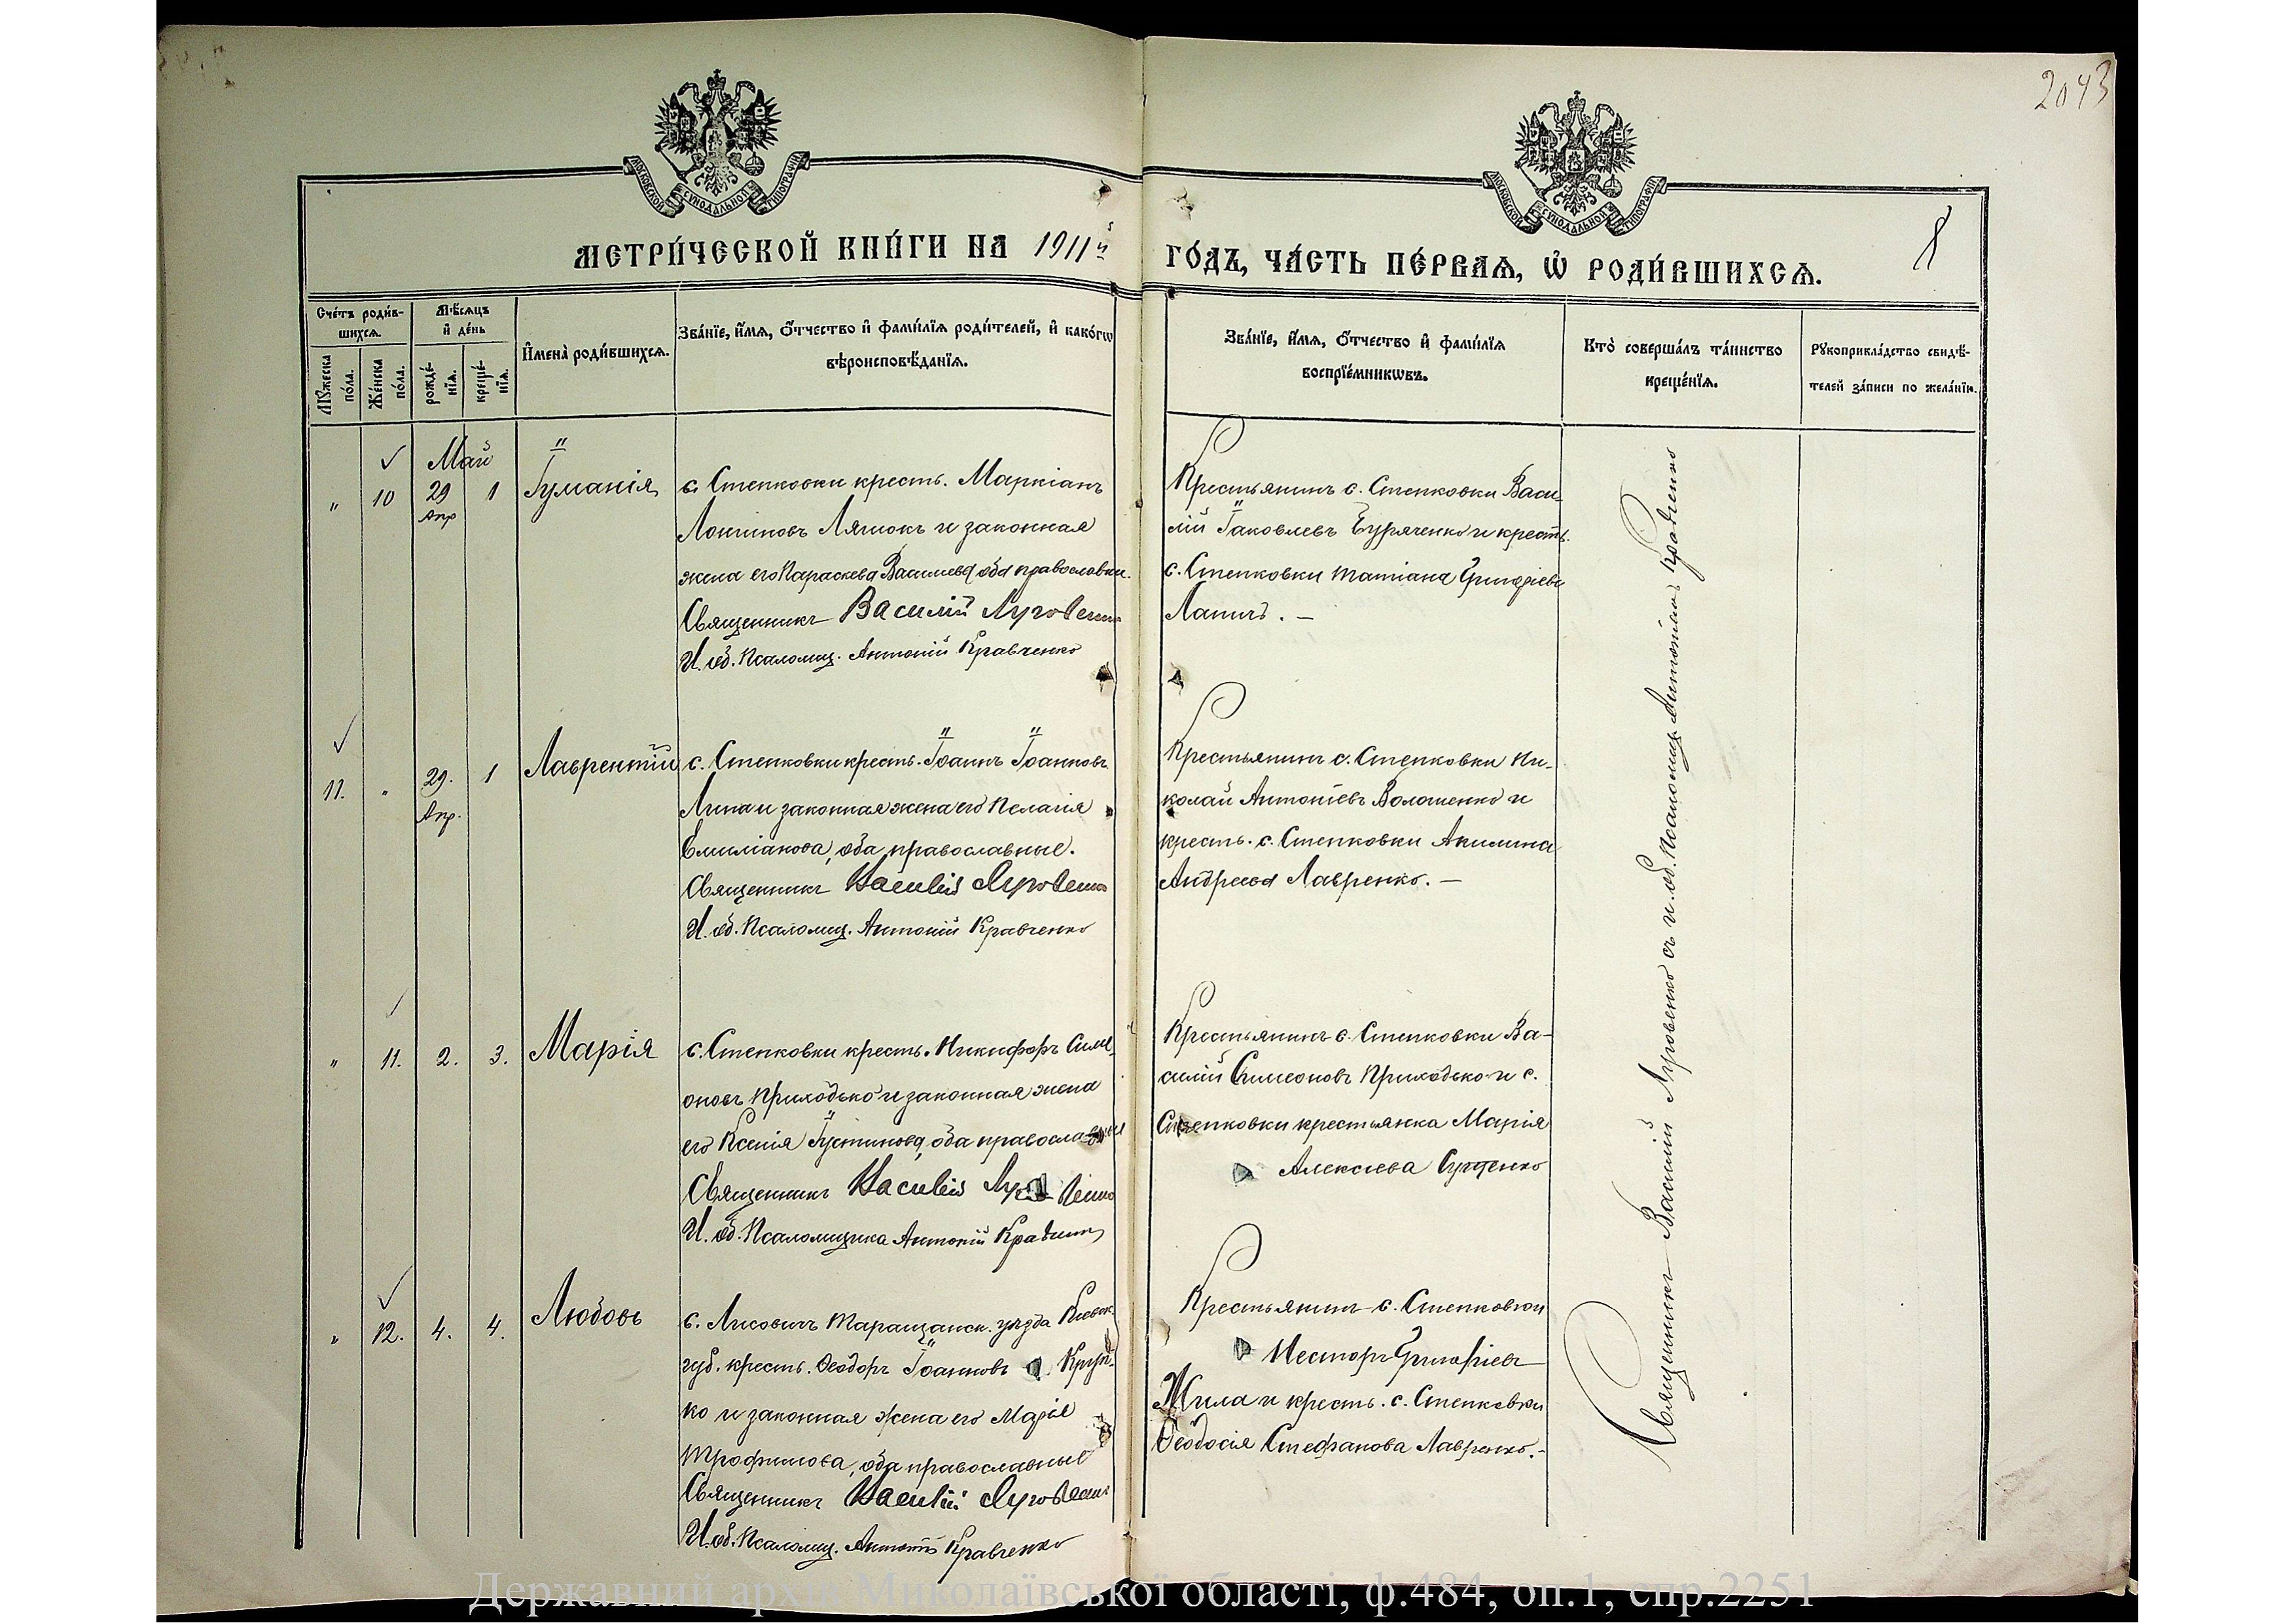 2043
МОСКОВСКОЙ СУНОДАЛЬНОЙ ТИПОГРАФІИ
МОСКОВСКОЙ СУНОДАЛЬНОЙ ТИПОГРАФІИ
МЕТРИ́ЧЕСКОЙ КНИ́ГИ НА 1911 й
ГО́ДЪ, ЧА́СТЬ ПЕ́РВАѦ, Ѡ҆ РОДИ́ВШИХСѦ.
8
Сче́тъ роди́в-
шихсѧ.
Мѣ́сѧцъ
и҆ де́нь
Мꙋ́жеска
по́ла.
Же́нска
по́ла.
рожде́-
нїѧ.
креще́-
нїѧ.
И҆мена̀ роди́вшихсѧ.
Зва́нїе, и҆́мѧ, ѻ҆́тчество и҆ фами́лїѧ роди́телей, и҆ како́гѡ
вѣроисповѣ́данїѧ.
Зва́нїе, и҆́мѧ, ѻ҆́тчество и҆ фами́лїѧ
воспрїе́мникѡвъ.
Кто̀ соверша́лъ та́инство
креще́нїѧ.
Рꙋкоприкла́дство свидѣ́-
телей за́писи по жела́нїю.
Май
" 10 29 1 Іуманія
Апр
с. Степковки кресть. Маркіанъ
Логиновъ Ляшокъ и законная
жена его Параскева Васильева, оба православн.
Священникъ Василій Луговенко
И. об. Псаломщ. Антоній Кравченко
Крестьянинъ с. Степковки Васи-
лій Іаковлевъ Буряченко и кресть.
с. Степковки Татіана Григоріева
Лапшъ. —
11. " 29. 1 Лаврентій
Апр.
с. Степковки кресть. Іоаннъ Іоанновъ
Липа и законная жена его Пелагія
Емиліанова, оба православные.
Священникъ Василій Луговенко
И. об. Псаломщ. Антоній Кравченко
Крестьянинъ с. Степковки Ни-
колай Антоніевъ Волошенко и
кресть. с. Степковки Акилина
Андреева Лавренко. —
" 11. 2. 3. Марія
с. Степковки кресть. Никифоръ Симе-
оновъ Приходько и законная жена
его Ксенія Іустинова, оба православные
Священникъ Василій Луговенко
И. об. Псаломщика Антоній Кравченко
Крестьянинъ с. Степковки Ва-
силій Симеоновъ Приходько и с.
Степковки крестьянка Марія
Алексіева
" 12. 4. 4. Любовь
с. Лисовичъ Таращанск. уѣзда Кіевск.
губ. кресть. Ѳеодоръ Іоанновъ Круп-
ко и законная жена его Марія
Трофимова, оба православные
Священникъ Василій Луговенко
И. об. Псаломщ. Антоній Кравченко
Крестьянинъ с. Степковки
Несторъ Григоріевъ
Жила и кресть. с. Степковки
Ѳеодосія Стефанова Лавренко. —
Священникъ Василій Луговенко съ и. об. Псаломщ. Антоніемъ Кравченко
Державний архів Миколаївської області, ф.484, оп.1, спр.2251